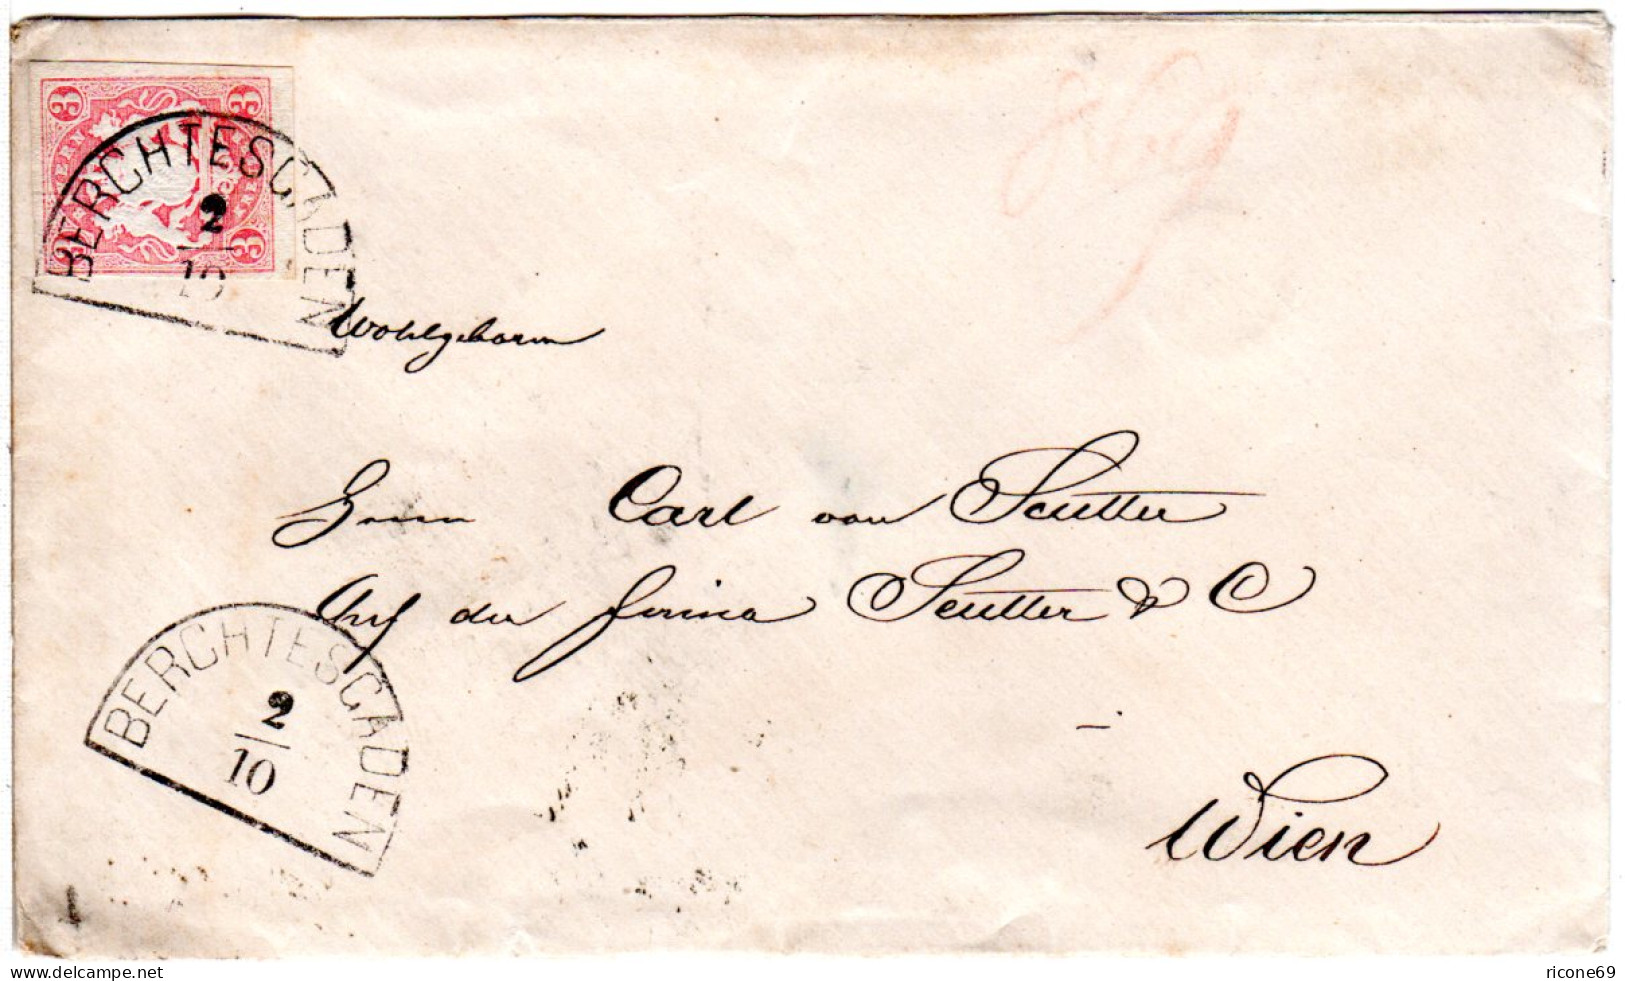 3 3
BAYERN
3 3
BERCHTESGADEN
2
10
Wohlgeborn
Herrn Carl von Scutter
Chef der Firma Scutter & C
BERCHTESGADEN
2
10
Wien
www.delcampe.net
ricone69